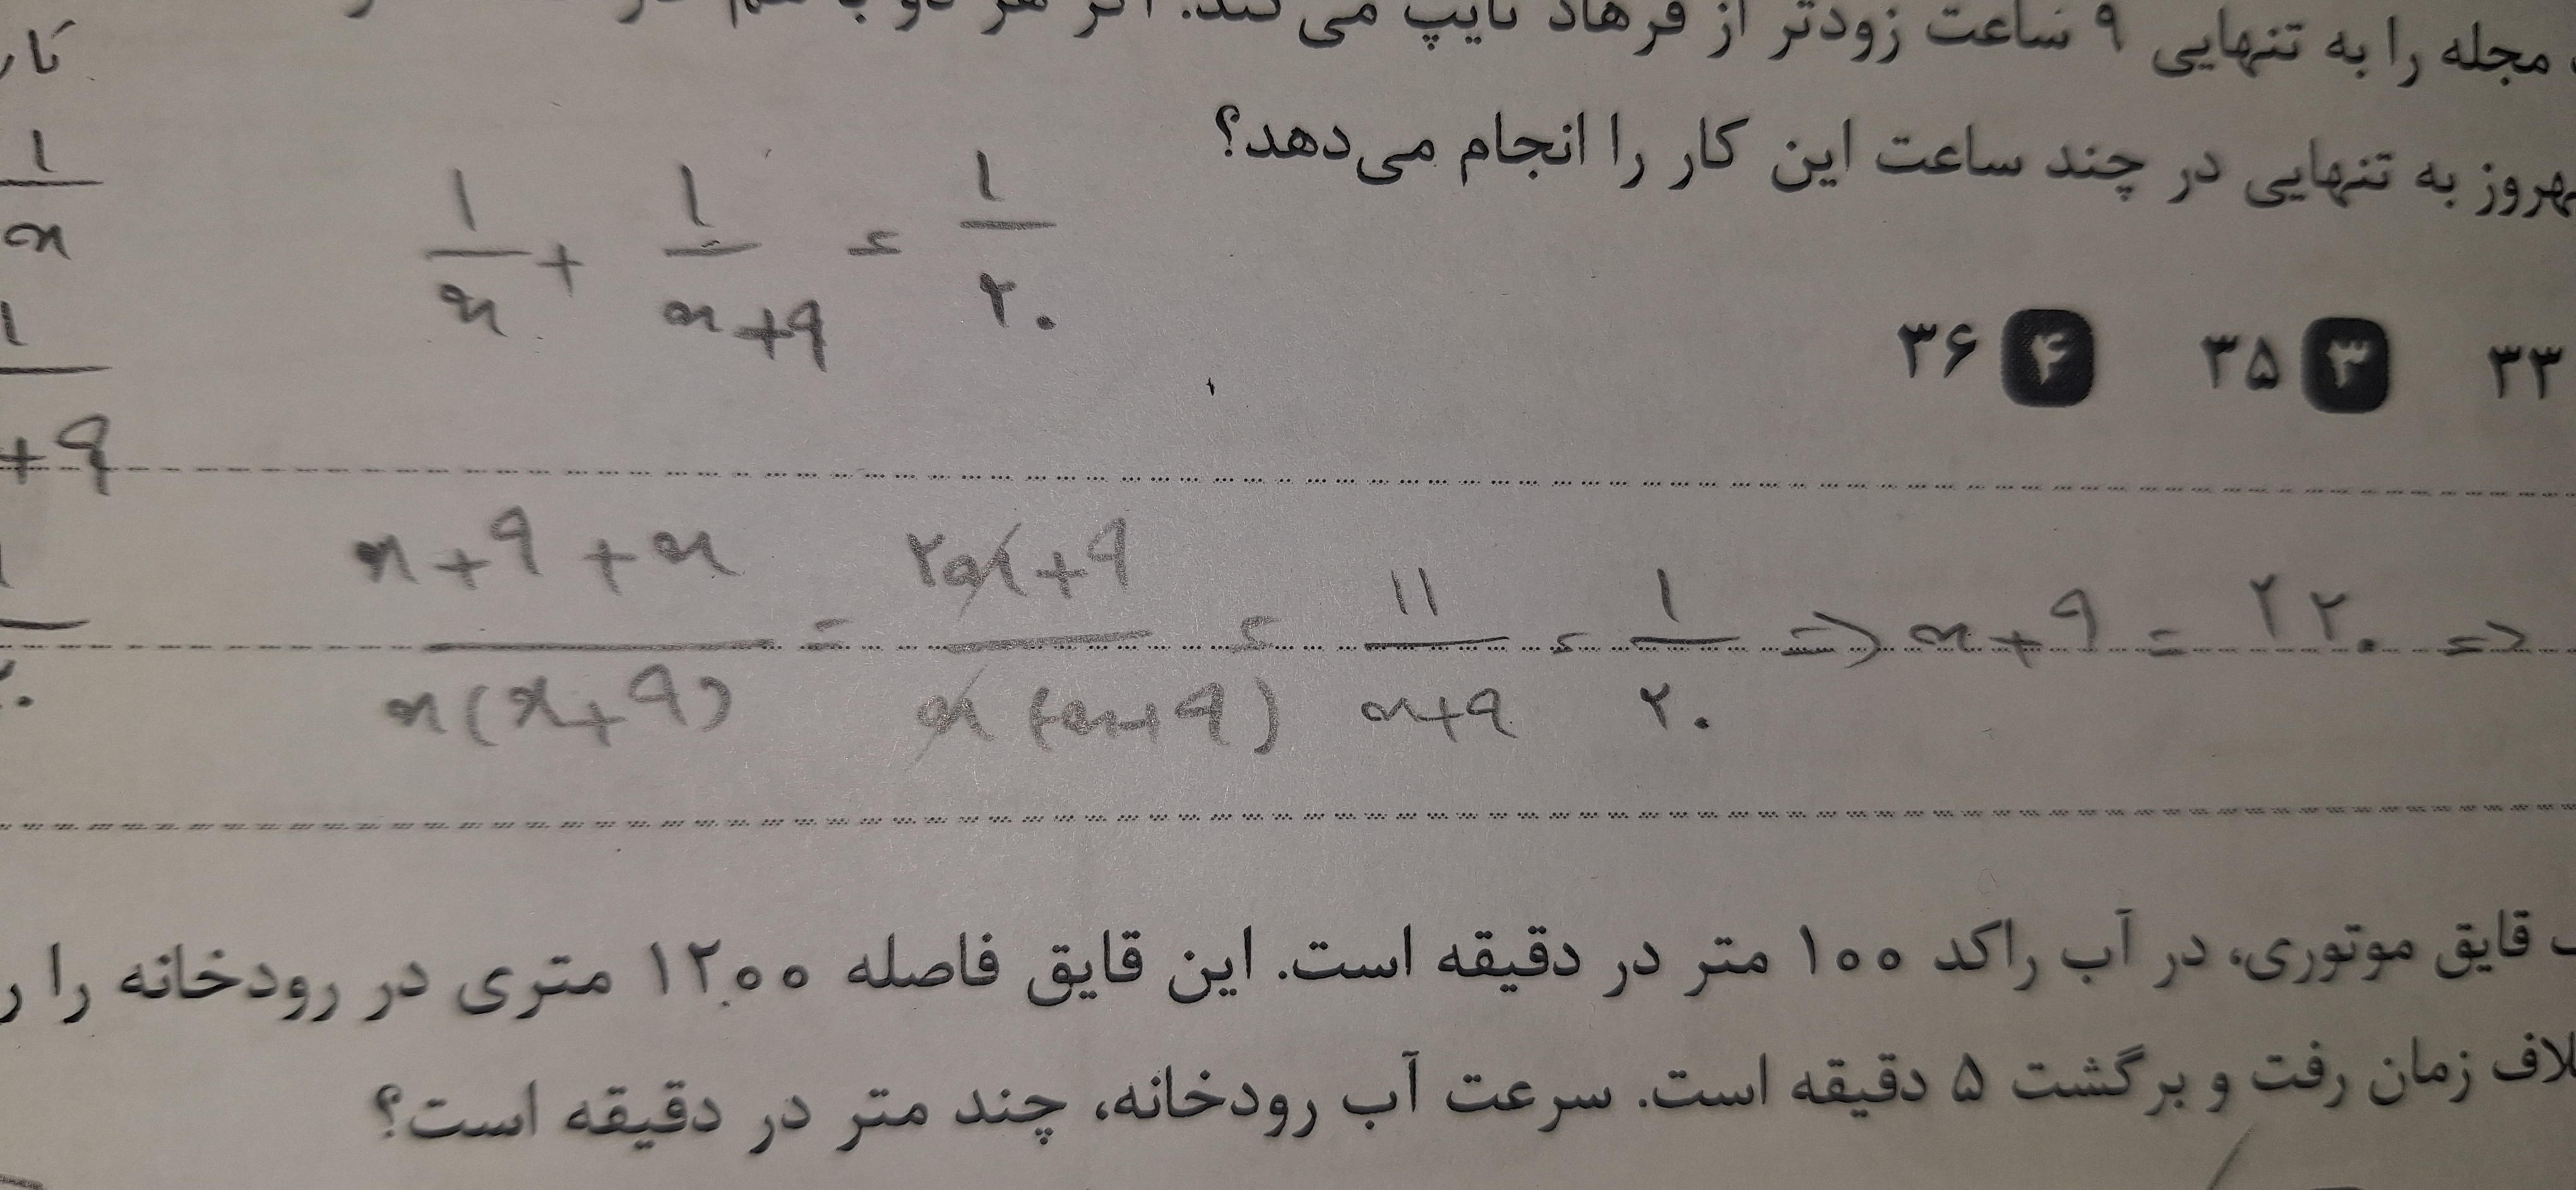 مجله را به تنهایی ۹ ساعت زودتر از فرهاد تایپ می‌کند. اگر هر دو با هم
بهروز به تنهایی در چند ساعت این کار را انجام می‌دهد؟
کار
۳۳ ۳ ۳۵ ۴ ۳۶
۱/x
۱/x + ۱/x+۹ = ۱/۲۰
۱/+۹
x+۹+x/x(x+۹) = ۲x+۹/x(x+۹) = ۱۱/x+۹ = ۱/۲۰ => x+۹ = ۲۲۰ =>
قایق موتوری، در آب راکد ۱۰۰ متر در دقیقه است. این قایق فاصله ۱۲۰۰ متری در رودخانه را
زمان رفت و برگشت ۵ دقیقه است. سرعت آب رودخانه، چند متر در دقیقه است؟